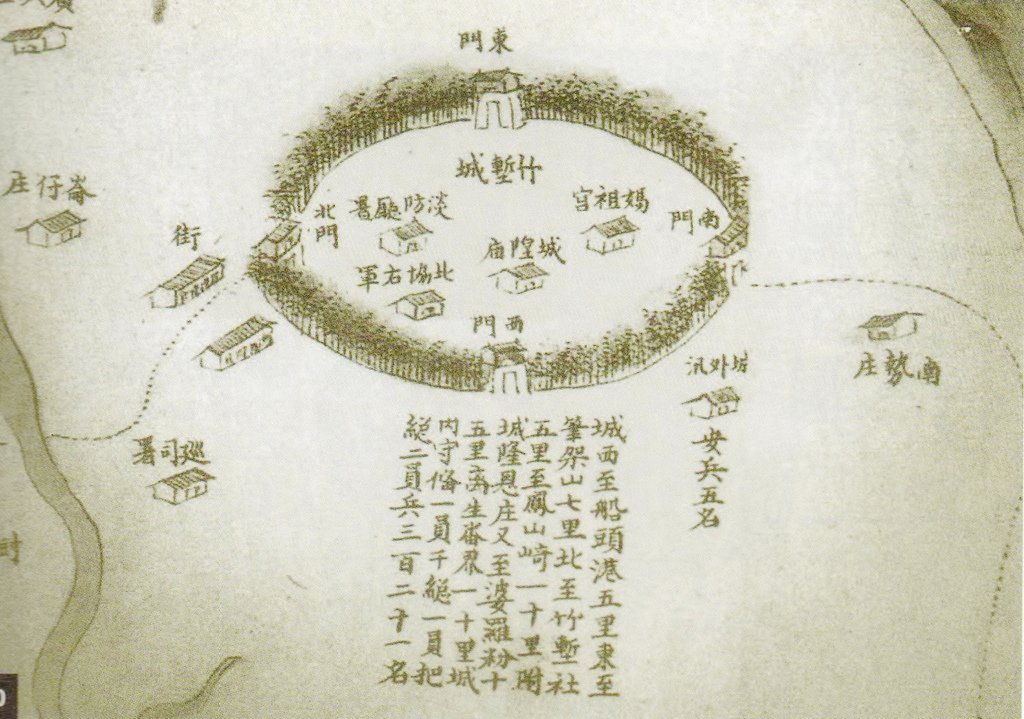 東門
竹塹城
媽祖宮
淡防廳署
南門
北門
城隍廟
北協右軍
西門
崙仔庄
街
南勢庄
外汛
安兵五名
巡司署
城西至船頭港五里東至
筆架山七里北至竹塹社
五里至鳳山崎一十里附
城隆恩庄又至婆羅粉十
五里离生番界一十里城
內守俻一員千縂一員把
縂二員兵三百二十一名